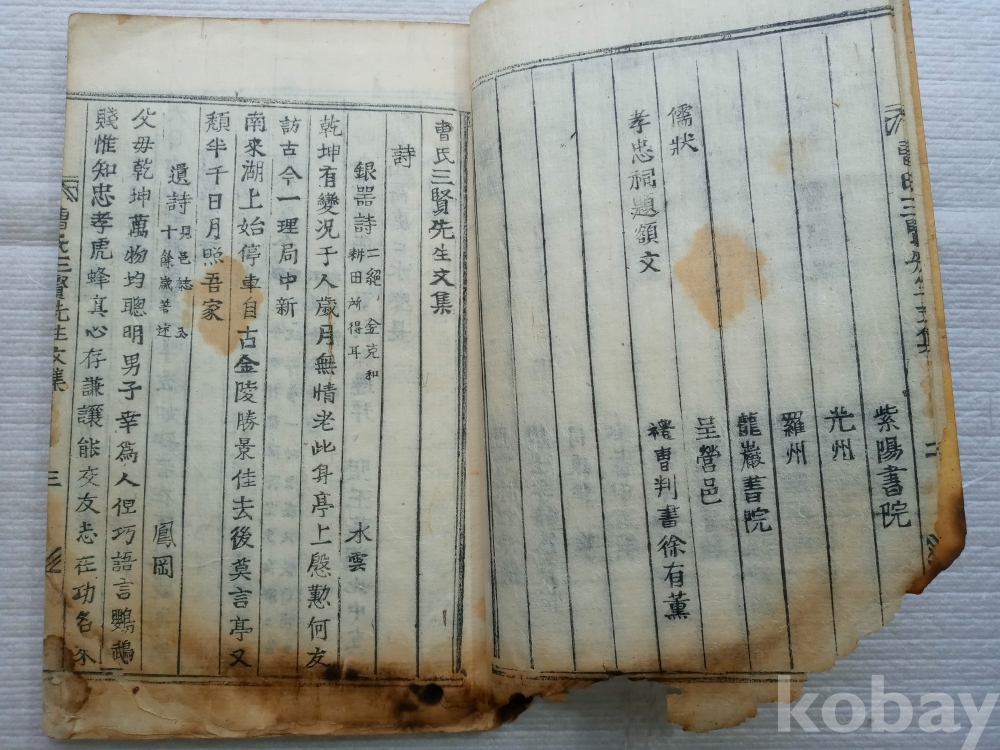 曹氏三賢先生文集
二
紫陽書院
光州
羅州
龍巖書院
呈營邑
儒狀
禮曹判書徐有薰
孝忠祠題額文
曹氏三賢先生文集
詩
銀器詩 二絕 金克和 耕田所得耳 水雲
乾坤有變況于人歲月無情老此身亭上慇懃何友
訪古今一理局中新
南來湖上始停車自古金陵勝景佳去後莫言亭又
頹半千日月照吾家
遺詩 見邑誌 十餘歲善述 鳳岡
父母乾坤萬物均聰明男子幸爲人徑巧語言鸚鵡
賤惟知忠孝虎蜂真心存謙讓能交友志在功名不
曹氏三賢先生文集
三
kobay